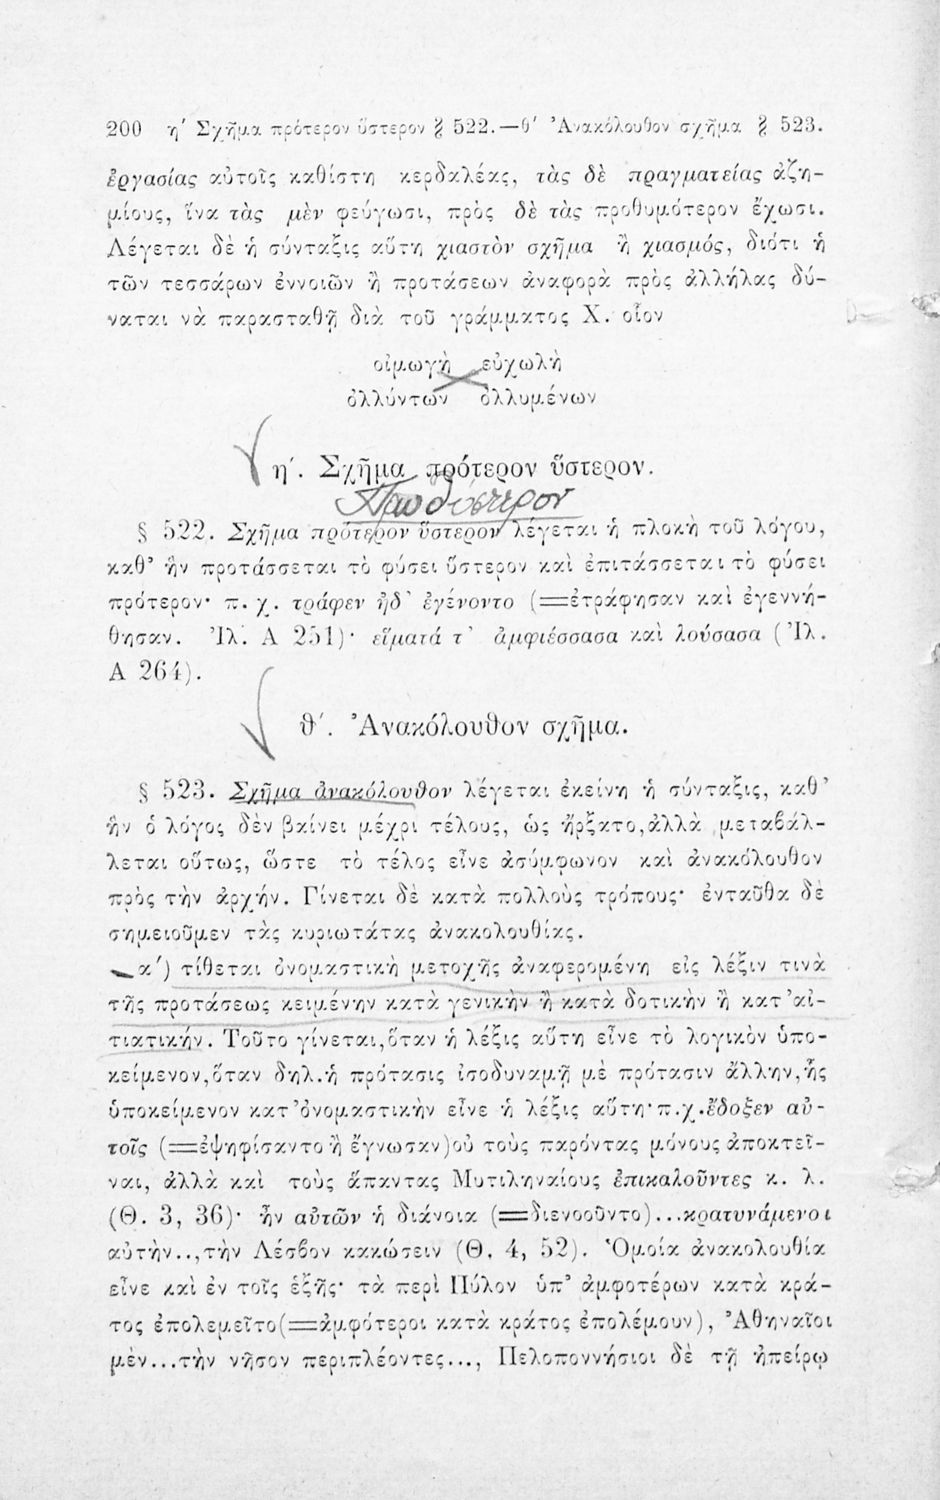 200 η' Σχῆμα πρότερον ὕστερον § 522.—θ' Ἀνακόλουθον σχῆμα § 523.
ἐργασίας αὐτοῖς καθίστη κερδαλέας, τὰς δὲ πραγματείας ἀζη-
μίους, ἵνα τὰς μὲν φεύγωσι, πρὸς δὲ τὰς προθυμότερον ἔχωσι.
Λέγεται δὲ ἡ σύνταξις αὕτη χιαστὸν σχῆμα ἢ χιασμός, διότι ἡ
τῶν τεσσάρων ἐννοιῶν ἢ προτάσεων ἀναφορὰ πρὸς ἀλλήλας δύ-
ναται νὰ παρασταθῇ διὰ τοῦ γράμματος Χ. οἷον
οἰμωγὴ εὐχωλὴ
ὀλλύντων ὀλλυμένων
η'. Σχῆμα πρότερον ὕστερον.
Πρωθύστερον
§ 522. Σχῆμα πρότερον ὕστερον λέγεται ἡ πλοκὴ τοῦ λόγου,
καθ' ἣν προτάσσεται τὸ φύσει ὕστερον καὶ ἐπιτάσσεται τὸ φύσει
πρότερον· π. χ. τράφεν ἠδ' ἐγένοντο (=ἐτράφησαν καὶ ἐγεννή-
θησαν. Ἰλ. Α 251)· εἵματά τ' ἀμφιέσσασα καὶ λούσασα (Ἰλ.
Α 264).
θ'. Ἀνακόλουθον σχῆμα.
§ 523. Σχῆμα ἀνακόλουθον λέγεται ἐκείνη ἡ σύνταξις, καθ'
ἣν ὁ λόγος δὲν βαίνει μέχρι τέλους, ὡς ἤρξατο, ἀλλὰ μεταβάλ-
λεται οὕτως, ὥστε τὸ τέλος εἶνε ἀσύμφωνον καὶ ἀνακόλουθον
πρὸς τὴν ἀρχήν. Γίνεται δὲ κατὰ πολλοὺς τρόπους· ἐνταῦθα δὲ
σημειοῦμεν τὰς κυριωτάτας ἀνακολουθίας.
α') τίθεται ὀνομαστικὴ μετοχῆς ἀναφερομένη εἰς λέξιν τινὰ
τῆς προτάσεως κειμένην κατὰ γενικὴν ἢ κατὰ δοτικὴν ἢ κατ' αἰ-
τιατικήν. Τοῦτο γίνεται, ὅταν ἡ λέξις αὕτη εἶνε τὸ λογικὸν ὑπο-
κείμενον, ὅταν δηλ. ἡ πρότασις ἰσοδυναμῇ μὲ πρότασιν ἄλλην, ἧς
ὑποκείμενον κατ' ὀνομαστικὴν εἶνε ἡ λέξις αὕτη· π.χ. ἔδοξεν αὐ-
τοῖς (=ἐψηφίσαντο ἢ ἔγνωσαν) οὐ τοὺς παρόντας μόνους ἀποκτεῖ-
ναι, ἀλλὰ καὶ τοὺς ἅπαντας Μυτιληναίους ἐπικαλοῦντες κ. λ.
(Θ. 3, 36)· ἦν αὐτῶν ἡ διάνοια (=διενοοῦντο)...κρατυνάμενοι
αὐτὴν.., τὴν Λέσβον κακώσειν (Θ. 4, 52). Ὁμοία ἀνακολουθία
εἶνε καὶ ἐν τοῖς ἑξῆς· τὰ περὶ Πύλον ὑπ' ἀμφοτέρων κατὰ κρά-
τος ἐπολεμεῖτο (=ἀμφότεροι κατὰ κράτος ἐπολέμουν), Ἀθηναῖοι
μὲν...τὴν νῆσον περιπλέοντες..., Πελοποννήσιοι δὲ τῇ ἠπείρῳ